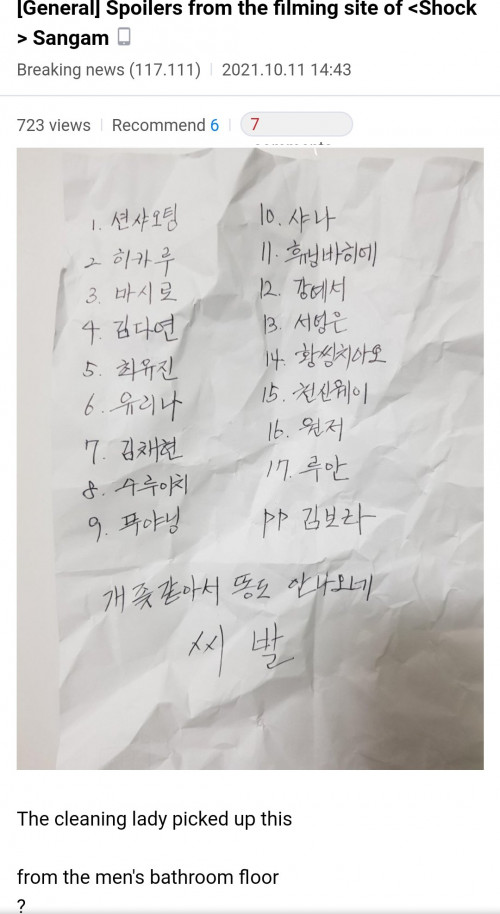 [General] Spoilers from the filming site of <Shock
> Sangam
Breaking news (117.111) | 2021.10.11 14:43
723 views | Recommend 6 | 7
1. 션샤오팅
2 히카루
3. 마시로
4. 김다연
5. 최유진
6. 유리나
7. 김채현
8. 수루이치
9. 푸야닝
10. 샤나
11. 휴닝바히에
12. 강예서
13. 서영은
14. 황씽치아오
15. 천신웨이
16. 원저
17. 루안
PP 김보라
개 좆같아서 똥도 안나오네
씨 발
The cleaning lady picked up this
from the men's bathroom floor
?